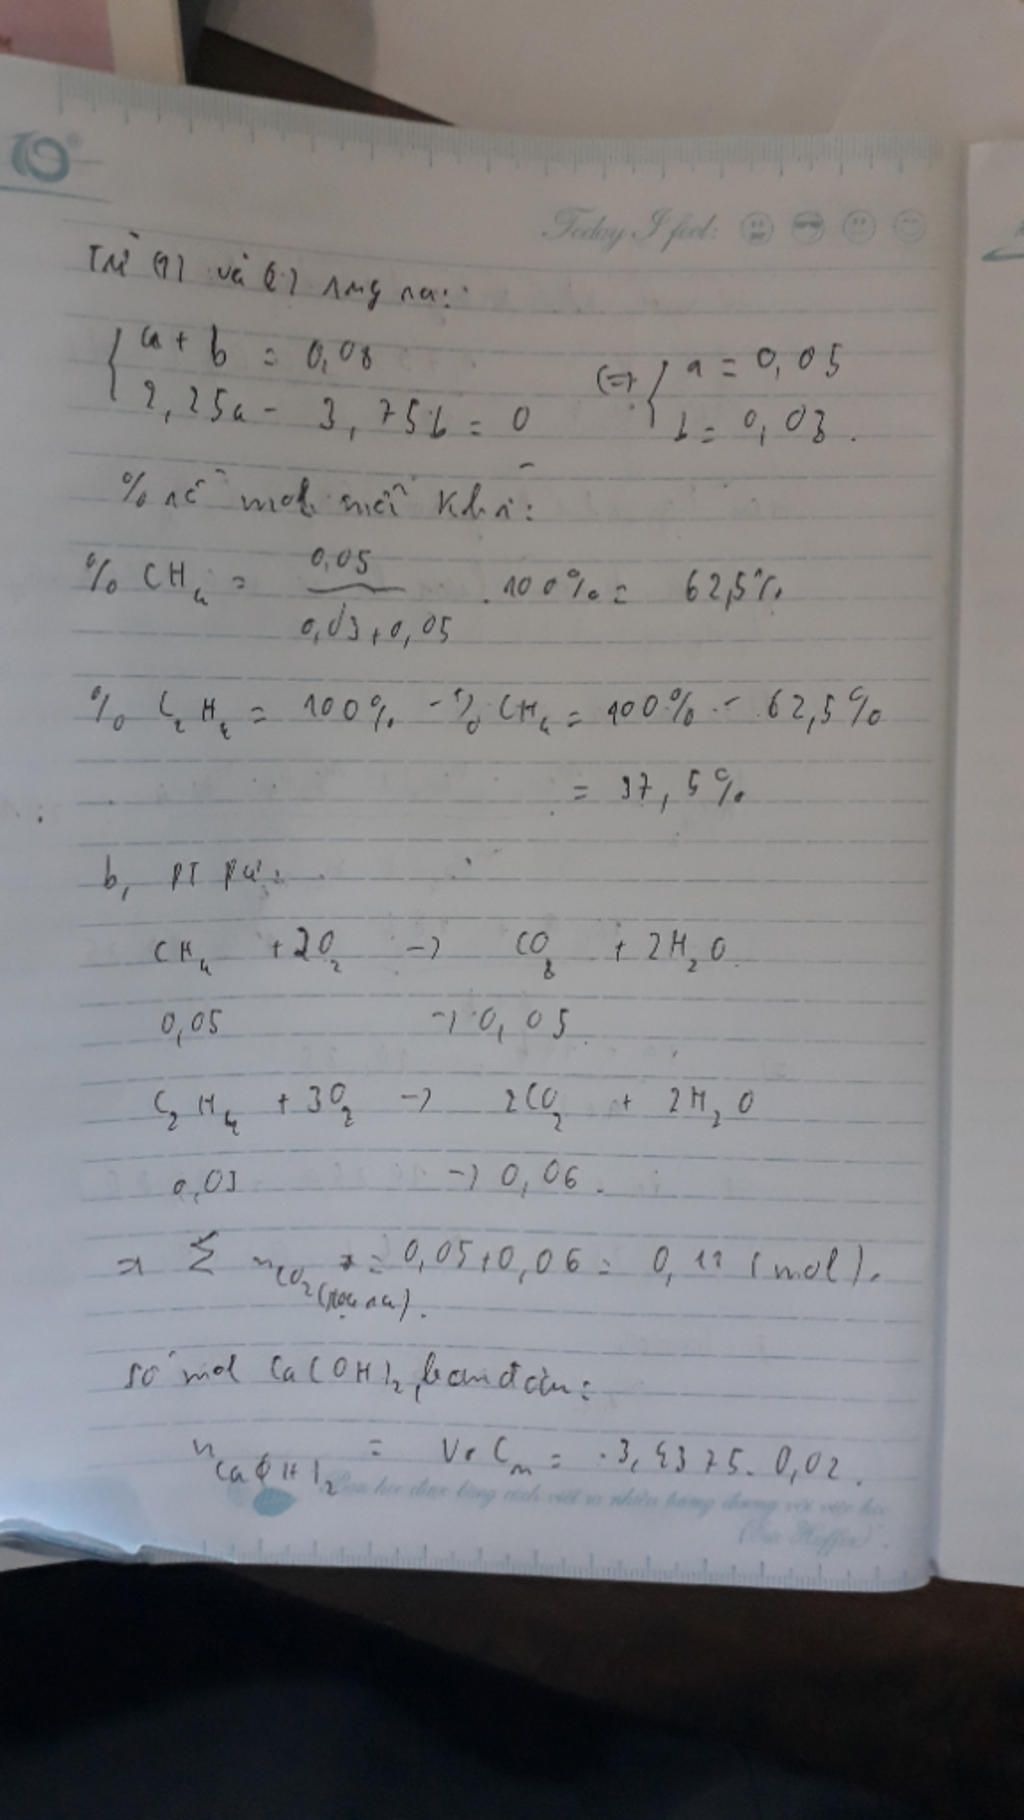 Today I feel:
Từ (1) và (2) suy ra:
a + b = 0,08
2,25a - 3,75b = 0
(=) a = 0,05
b = 0,03.
% số mol mỗi khí:
% CH4 = 0,05 / 0,03+0,05 . 100% = 62,5%
% C2H4 = 100% - % CH4 = 100% - 62,5%
= 37,5%
b, PT pứ:
CH4 + 2O2 -> CO2 + 2H2O
0,05 -> 0,05
C2H4 + 3O2 -> 2CO2 + 2H2O
0,03 -> 0,06.
=> Σ nCO2 = 0,05+0,06 = 0,11 (mol).
số mol Ca(OH)2 ban đầu:
nCa(OH)2 = V. Cm = 3,4375. 0,02.